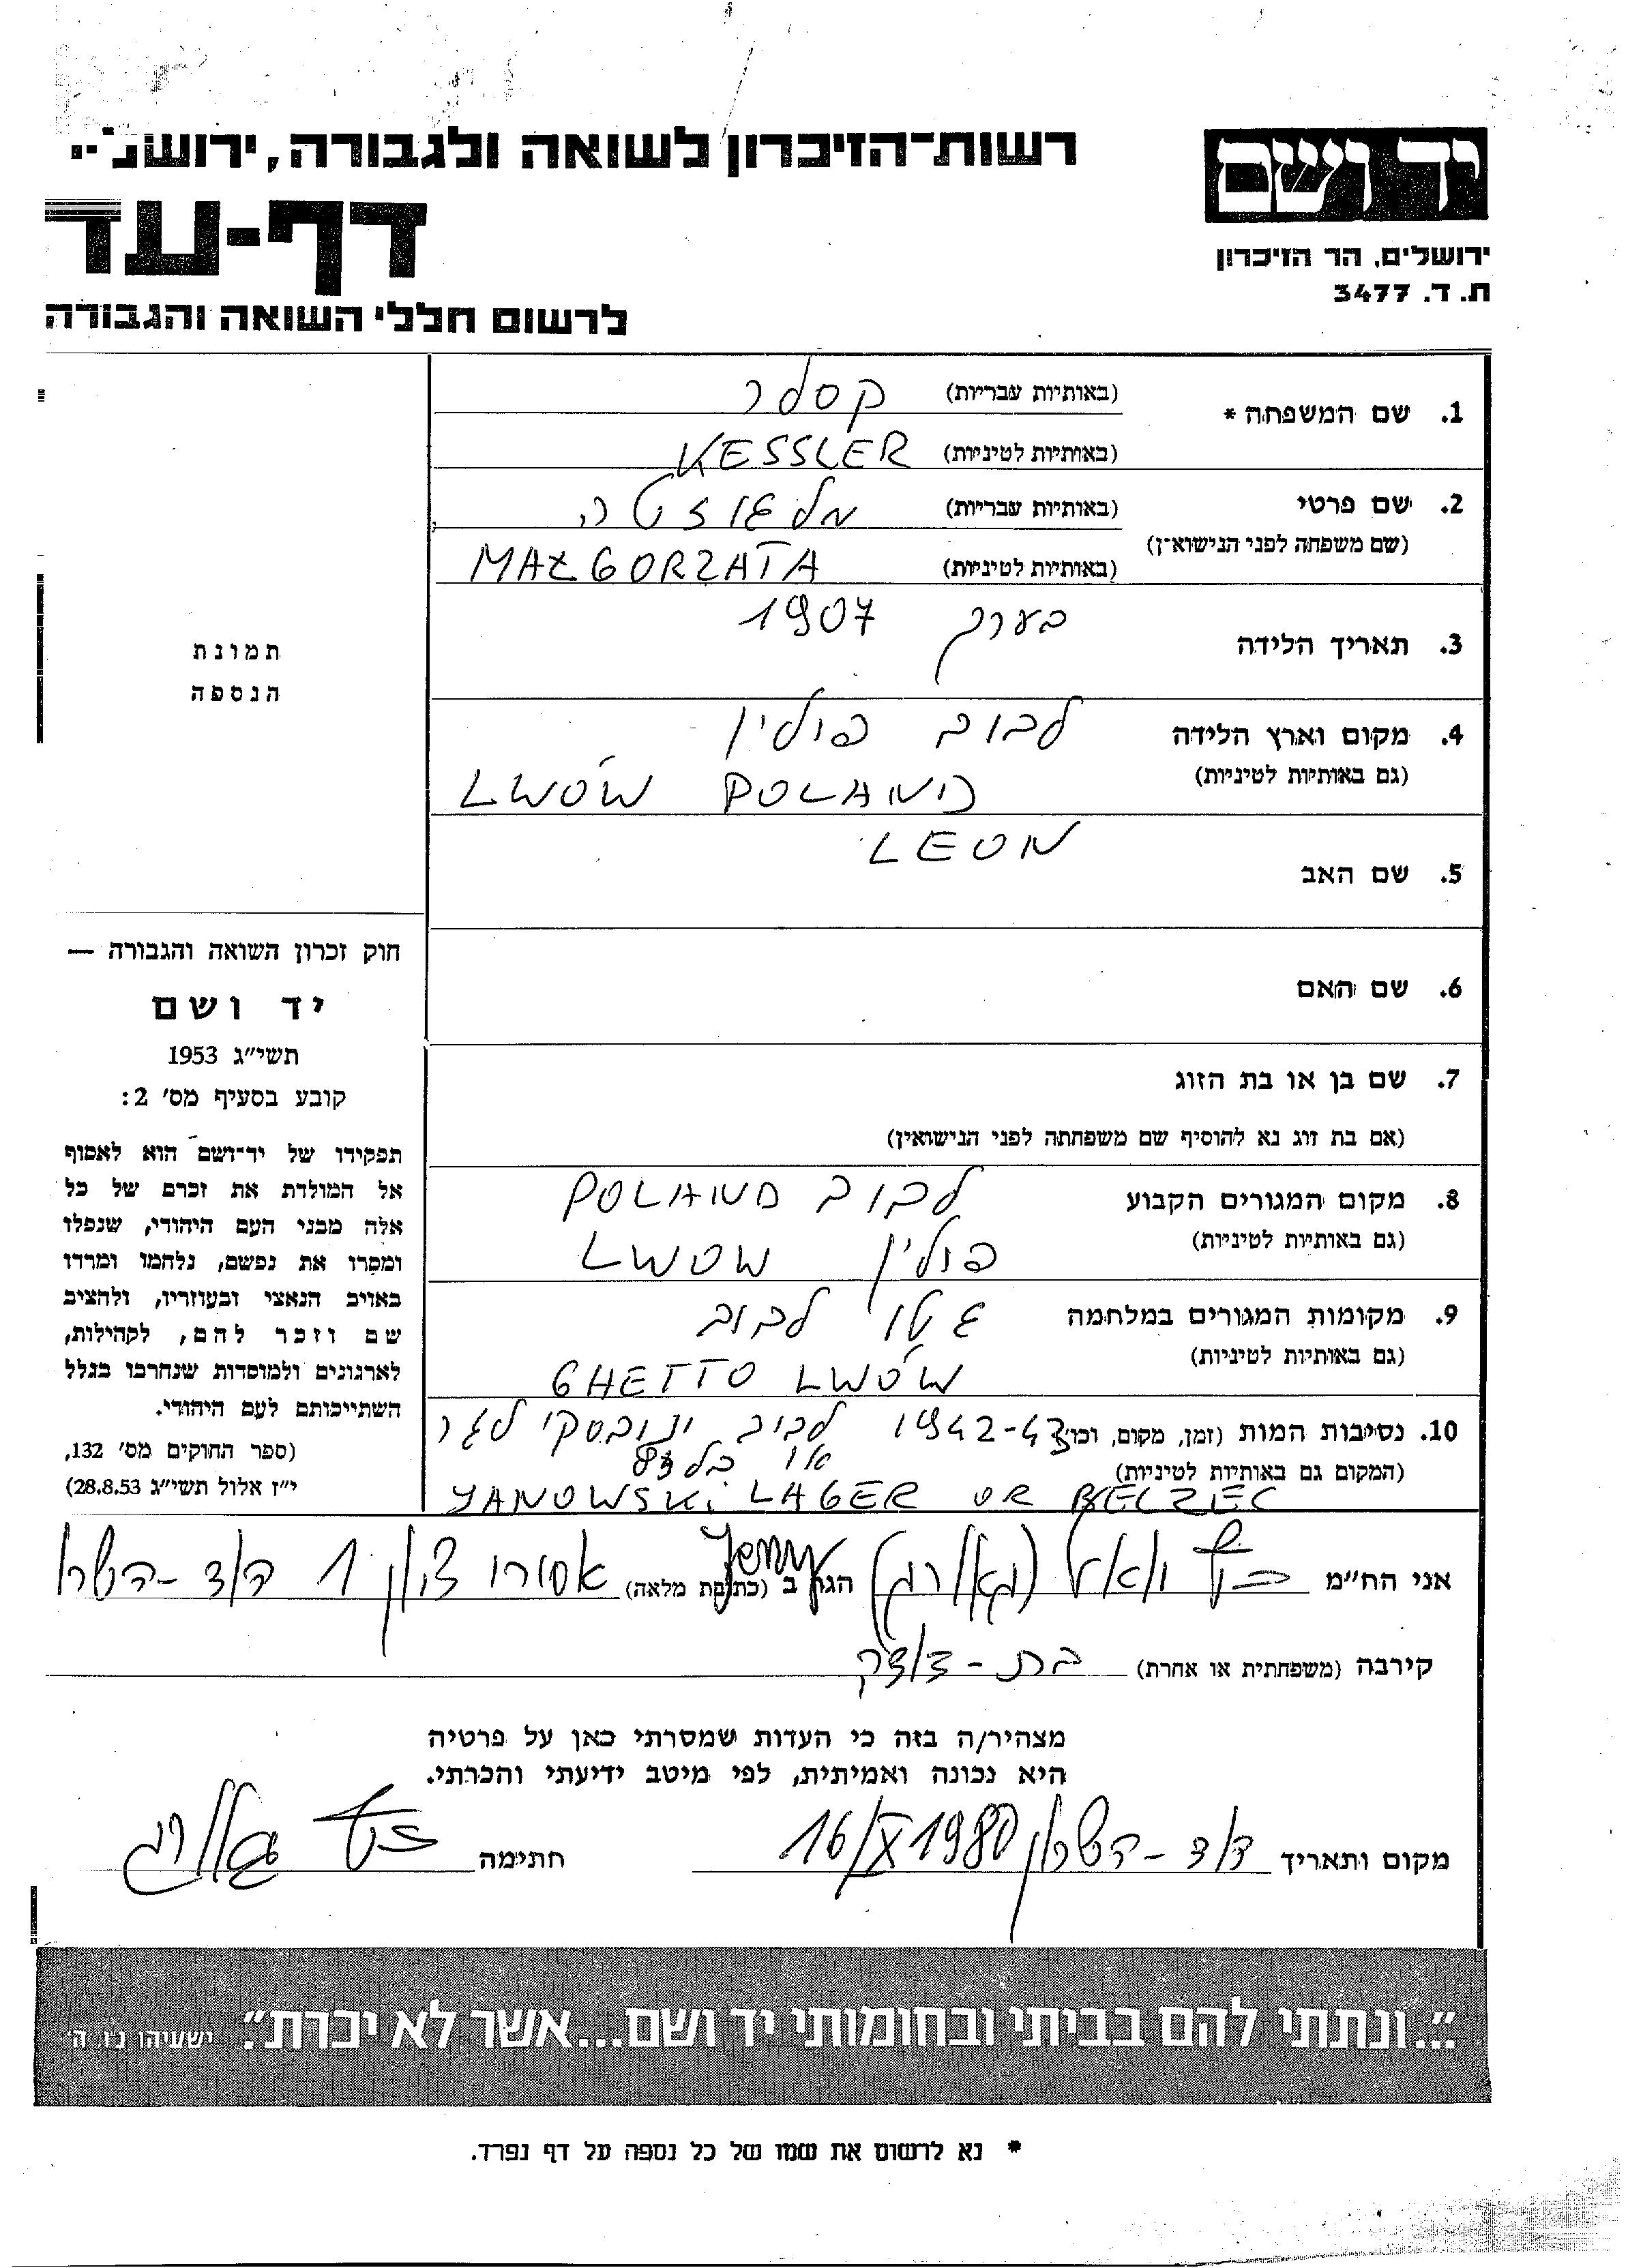 רשות-הזיכרון לשואה ולגבורה,
יד ושם
דף-עד
ירושלים, הר הזיכרון
ת. ד. 3477
לרשום חללי השואה והגבורה
1. שם המשפחה * (באותיות עבריות) קסלר
(באותיות לטיניות) KESSLER
2. שם פרטי (באותיות עבריות)
(שם משפחה לפני הנישואין)
(באותיות לטיניות) MAŁGORZATA
3. תאריך הלידה בערך 1907
4. מקום וארץ הלידה לבוב פולין
(גם באותיות לטיניות) LWÓW POLAND
5. שם האב LEON
6. שם האם
7. שם בן או בת הזוג
(אם בת זוג נא להוסיף שם משפחתה לפני הנישואין)
8. מקום המגורים הקבוע לבוב POLAND
(גם באותיות לטיניות) פולין LWOW
9. מקומות המגורים במלחמה גטו לבוב
(גם באותיות לטיניות) GHETTO LWÓW
10. נסיבות המות (זמן, מקום, וכו׳) 1942-43 לבוב ינובסקי לגר
או
(המקום גם באותיות לטיניות)
YANOWSKI LAGER OR BELZEC
תמונת
הנספה
חוק זכרון השואה והגבורה —
יד ושם
תשי״ג 1953
קובע בסעיף מס׳ 2:
תפקידו של יד-ושם הוא לאסוף
אל המולדת את זכרם של כל
אלה מבני העם היהודי, שנפלו
ומסרו את נפשם, נלחמו ומרדו
באויב הנאצי ובעוזריו, ולהציב
שם וזכר להם, לקהילות,
לארגונים ולמוסדות שנחרבו בגלל
השתייכותם לעם היהודי.
(ספר החוקים מס׳ 132,
י״ז אלול תשי״ג 28.8.53)
אני הח״מ הגר ב (כתובת מלאה) 1 הוד-השרון
קירבה (משפחתית או אחרת) בת-דודה
מצהיר/ה בזה כי העדות שמסרתי כאן על פרטיה
היא נכונה ואמיתית, לפי מיטב ידיעתי והכרתי.
מקום ותאריך הוד-השרון 16/X 1980 חתימה
״...ונתתי להם בביתי ובחומותי יד ושם...אשר לא יכרת״. ישעיהו נו, ה׳
* נא לרשום את שמו של כל נספה על דף נפרד.